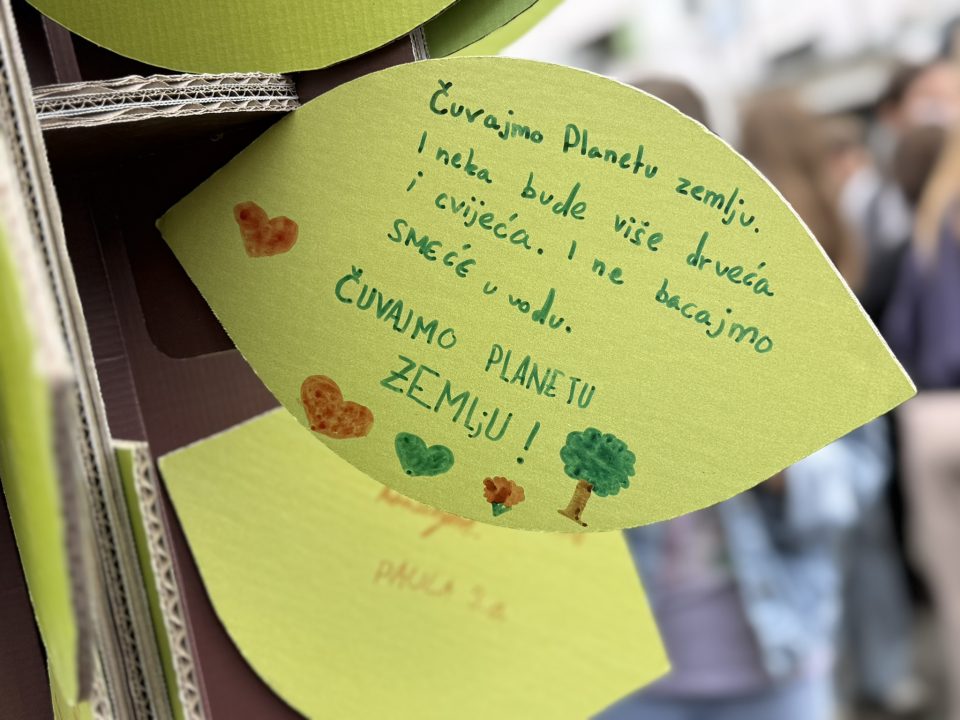 Čuvajmo Planetu zemlju.
I neka bude više drveća
i cvijeća. I ne bacajmo
SMEĆE u vodu.
ČUVAJMO PLANETU
ZEMLjU!
PAULA